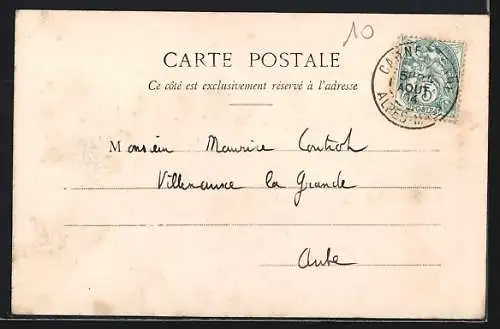 10
CARTE POSTALE
Ce côté est exclusivement réservé à l'adresse
CANNES
AOUT
ALPES-M
Monsieur Maurice
Villenauxe la Grande
Aube